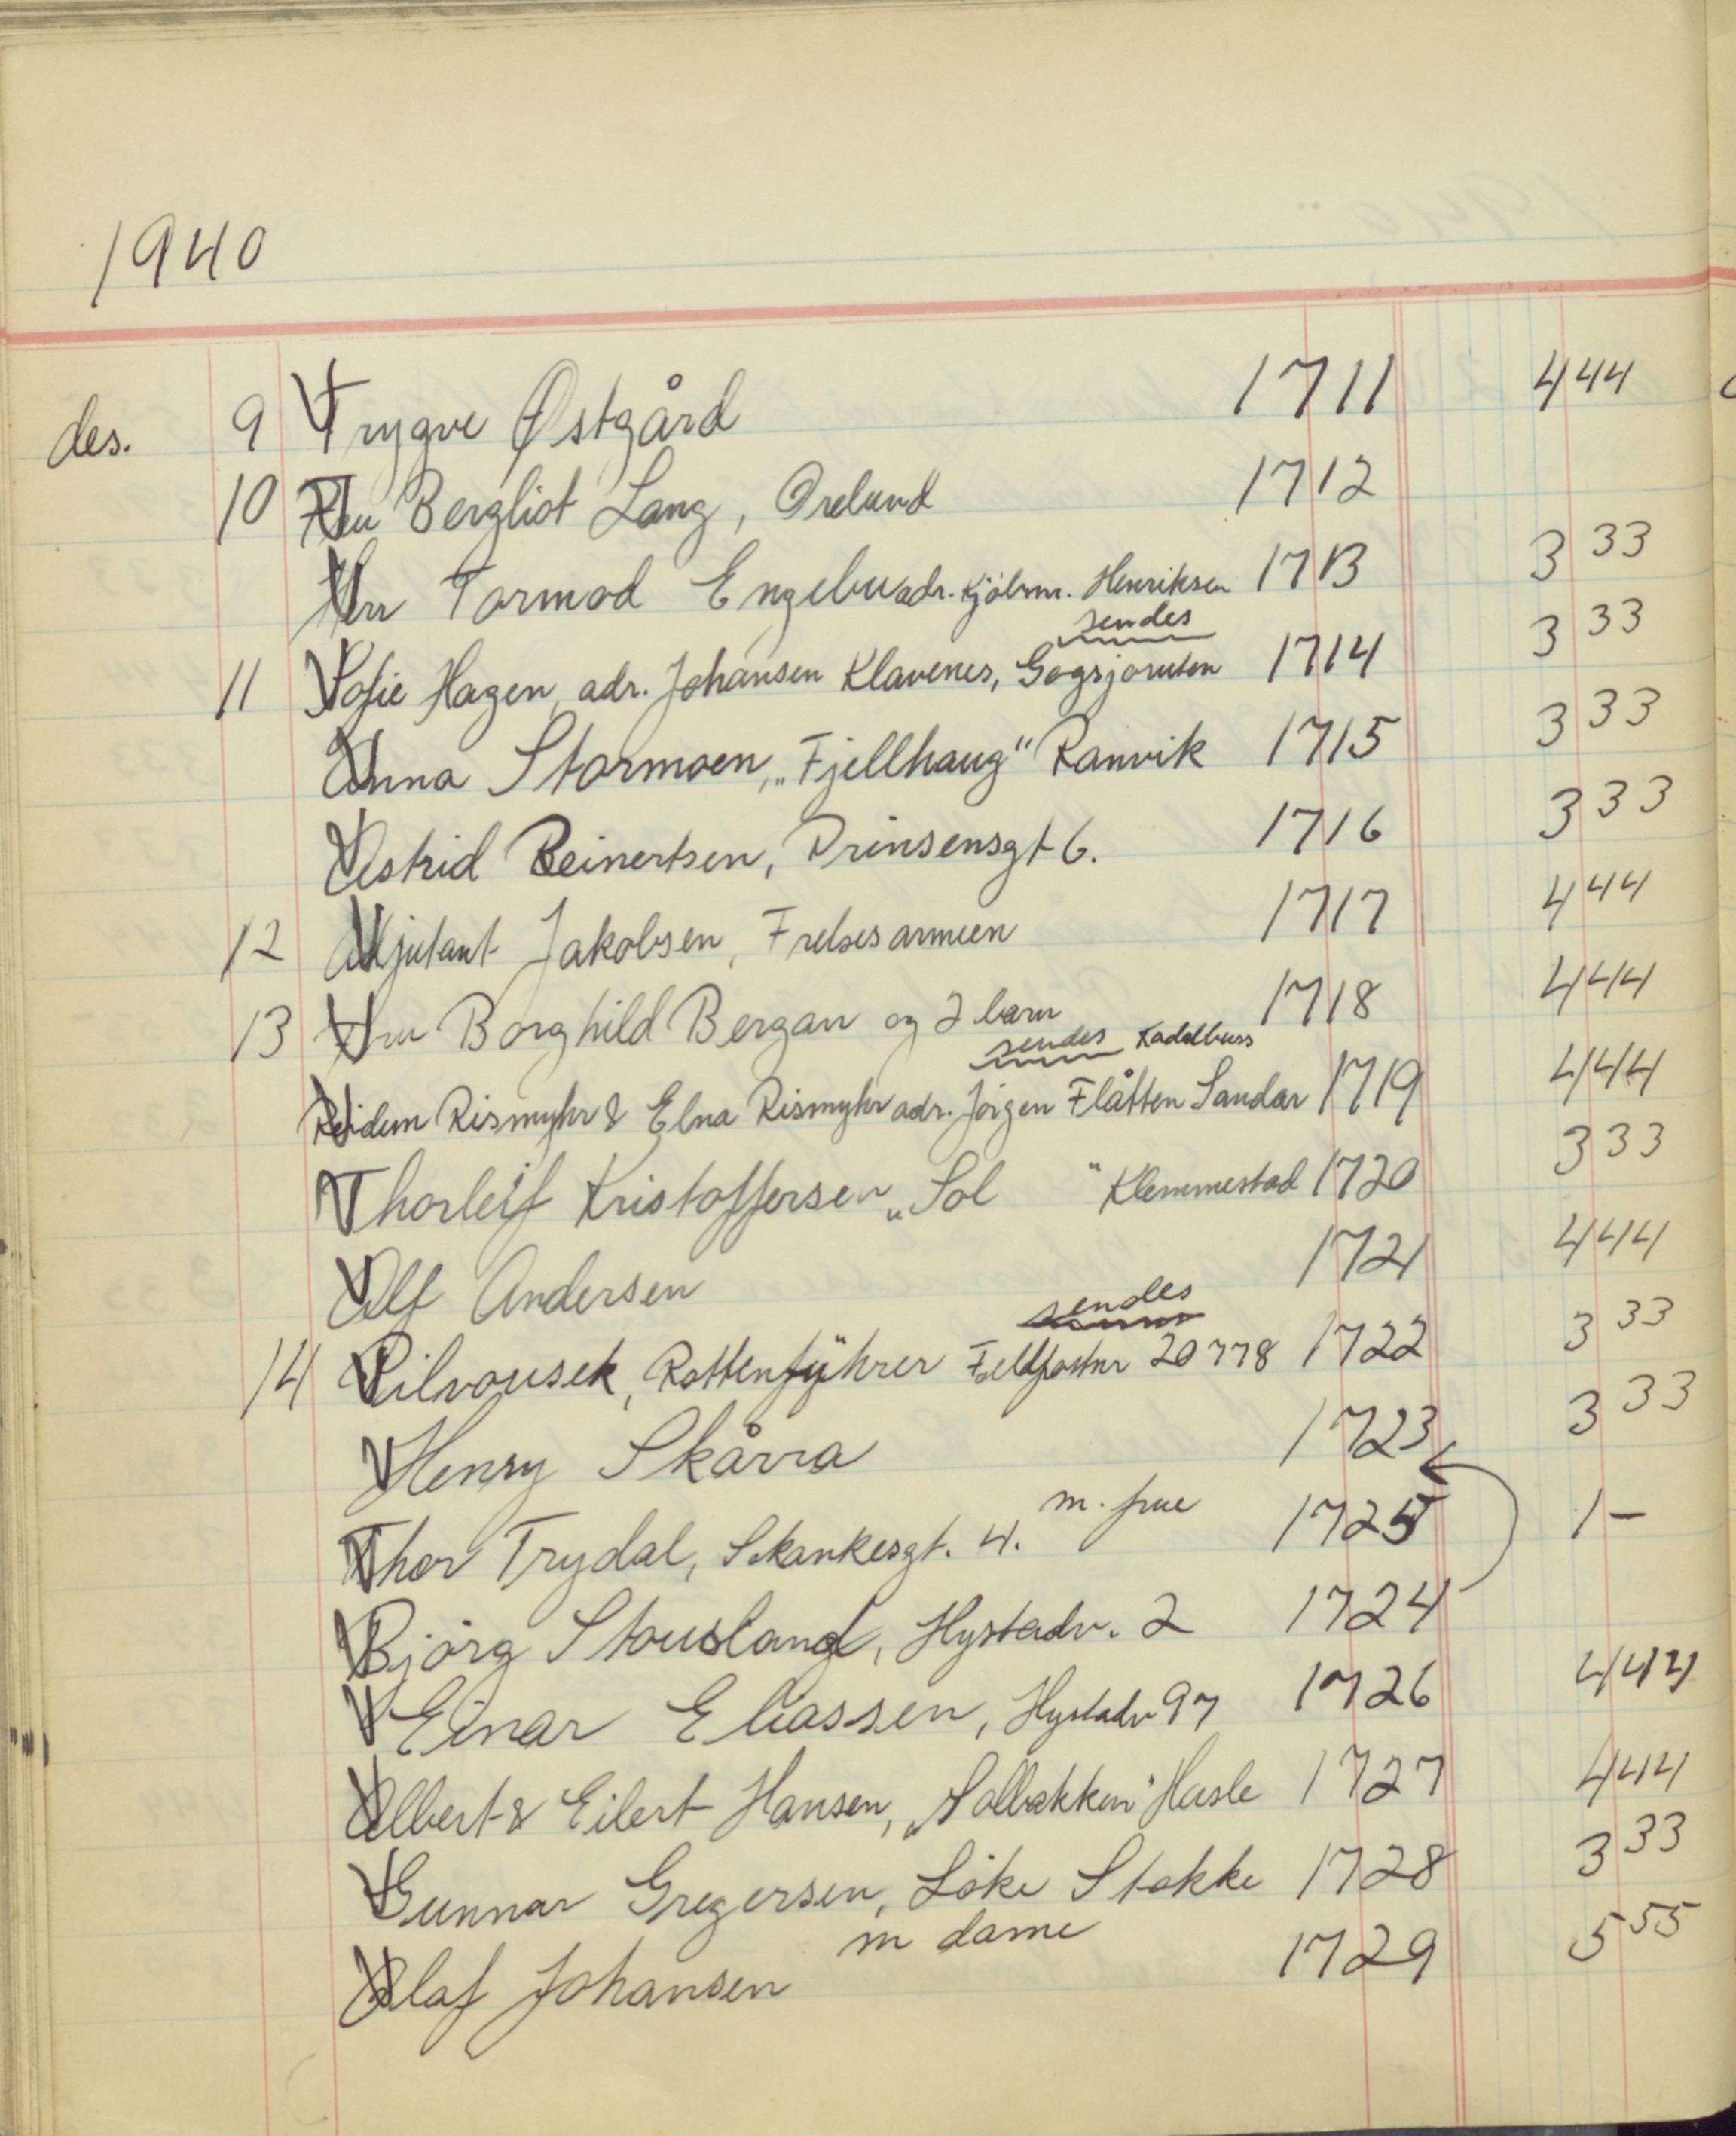 1940
des. 9 Trygve Østgård 1711 4 44
10 Fru Bergliot Lang, Orelund 1712
Herr Tormod Engebu adr. Kjölnr. Henriksen 1713 3 33
sendes
11 Sofie Hagen, adr. Johansen Klavenes, Gogsjoruten 1714 3 33
Anna Stormoen, „Fjellhaug" Ranvik 1715 3 33
Astrid Reinertsen, Prinsensgt 6. 1716 3 33
12 Adjutant Jakobsen, Frelsesarmeen 1717 4 44
13 Fru Borghild Bergan og 2 barn 1718 4 44
sendes Kadalbuss
Reidun Rismyhr & Elna Rismyhr adr. Jörgen Flåtten Sandar 1719 4 44
Thorleif Kristoffersen „Sol " Klemmestad 1720 3 33
Alf Andersen 1721 4 44
sendes
14 Pilvousek, Rottenführer Feldpostnr 20778 1722 3 33
Henry Skårra 1723 3 33
m. frue
Thor Trydal, Skankesgt. 4. 1725 1 –
Björg Stousland, Hystadv. 2 1724
Einar Eliassen, Hystadv 97 1726 4 44
Albert & Eilert Hansen, „Solbakken" Hasle 1727 4 44
Gunnar Gregersen, Löke Stokke 1728 3 33
m dame
Olaf Johansen 1729 5 55